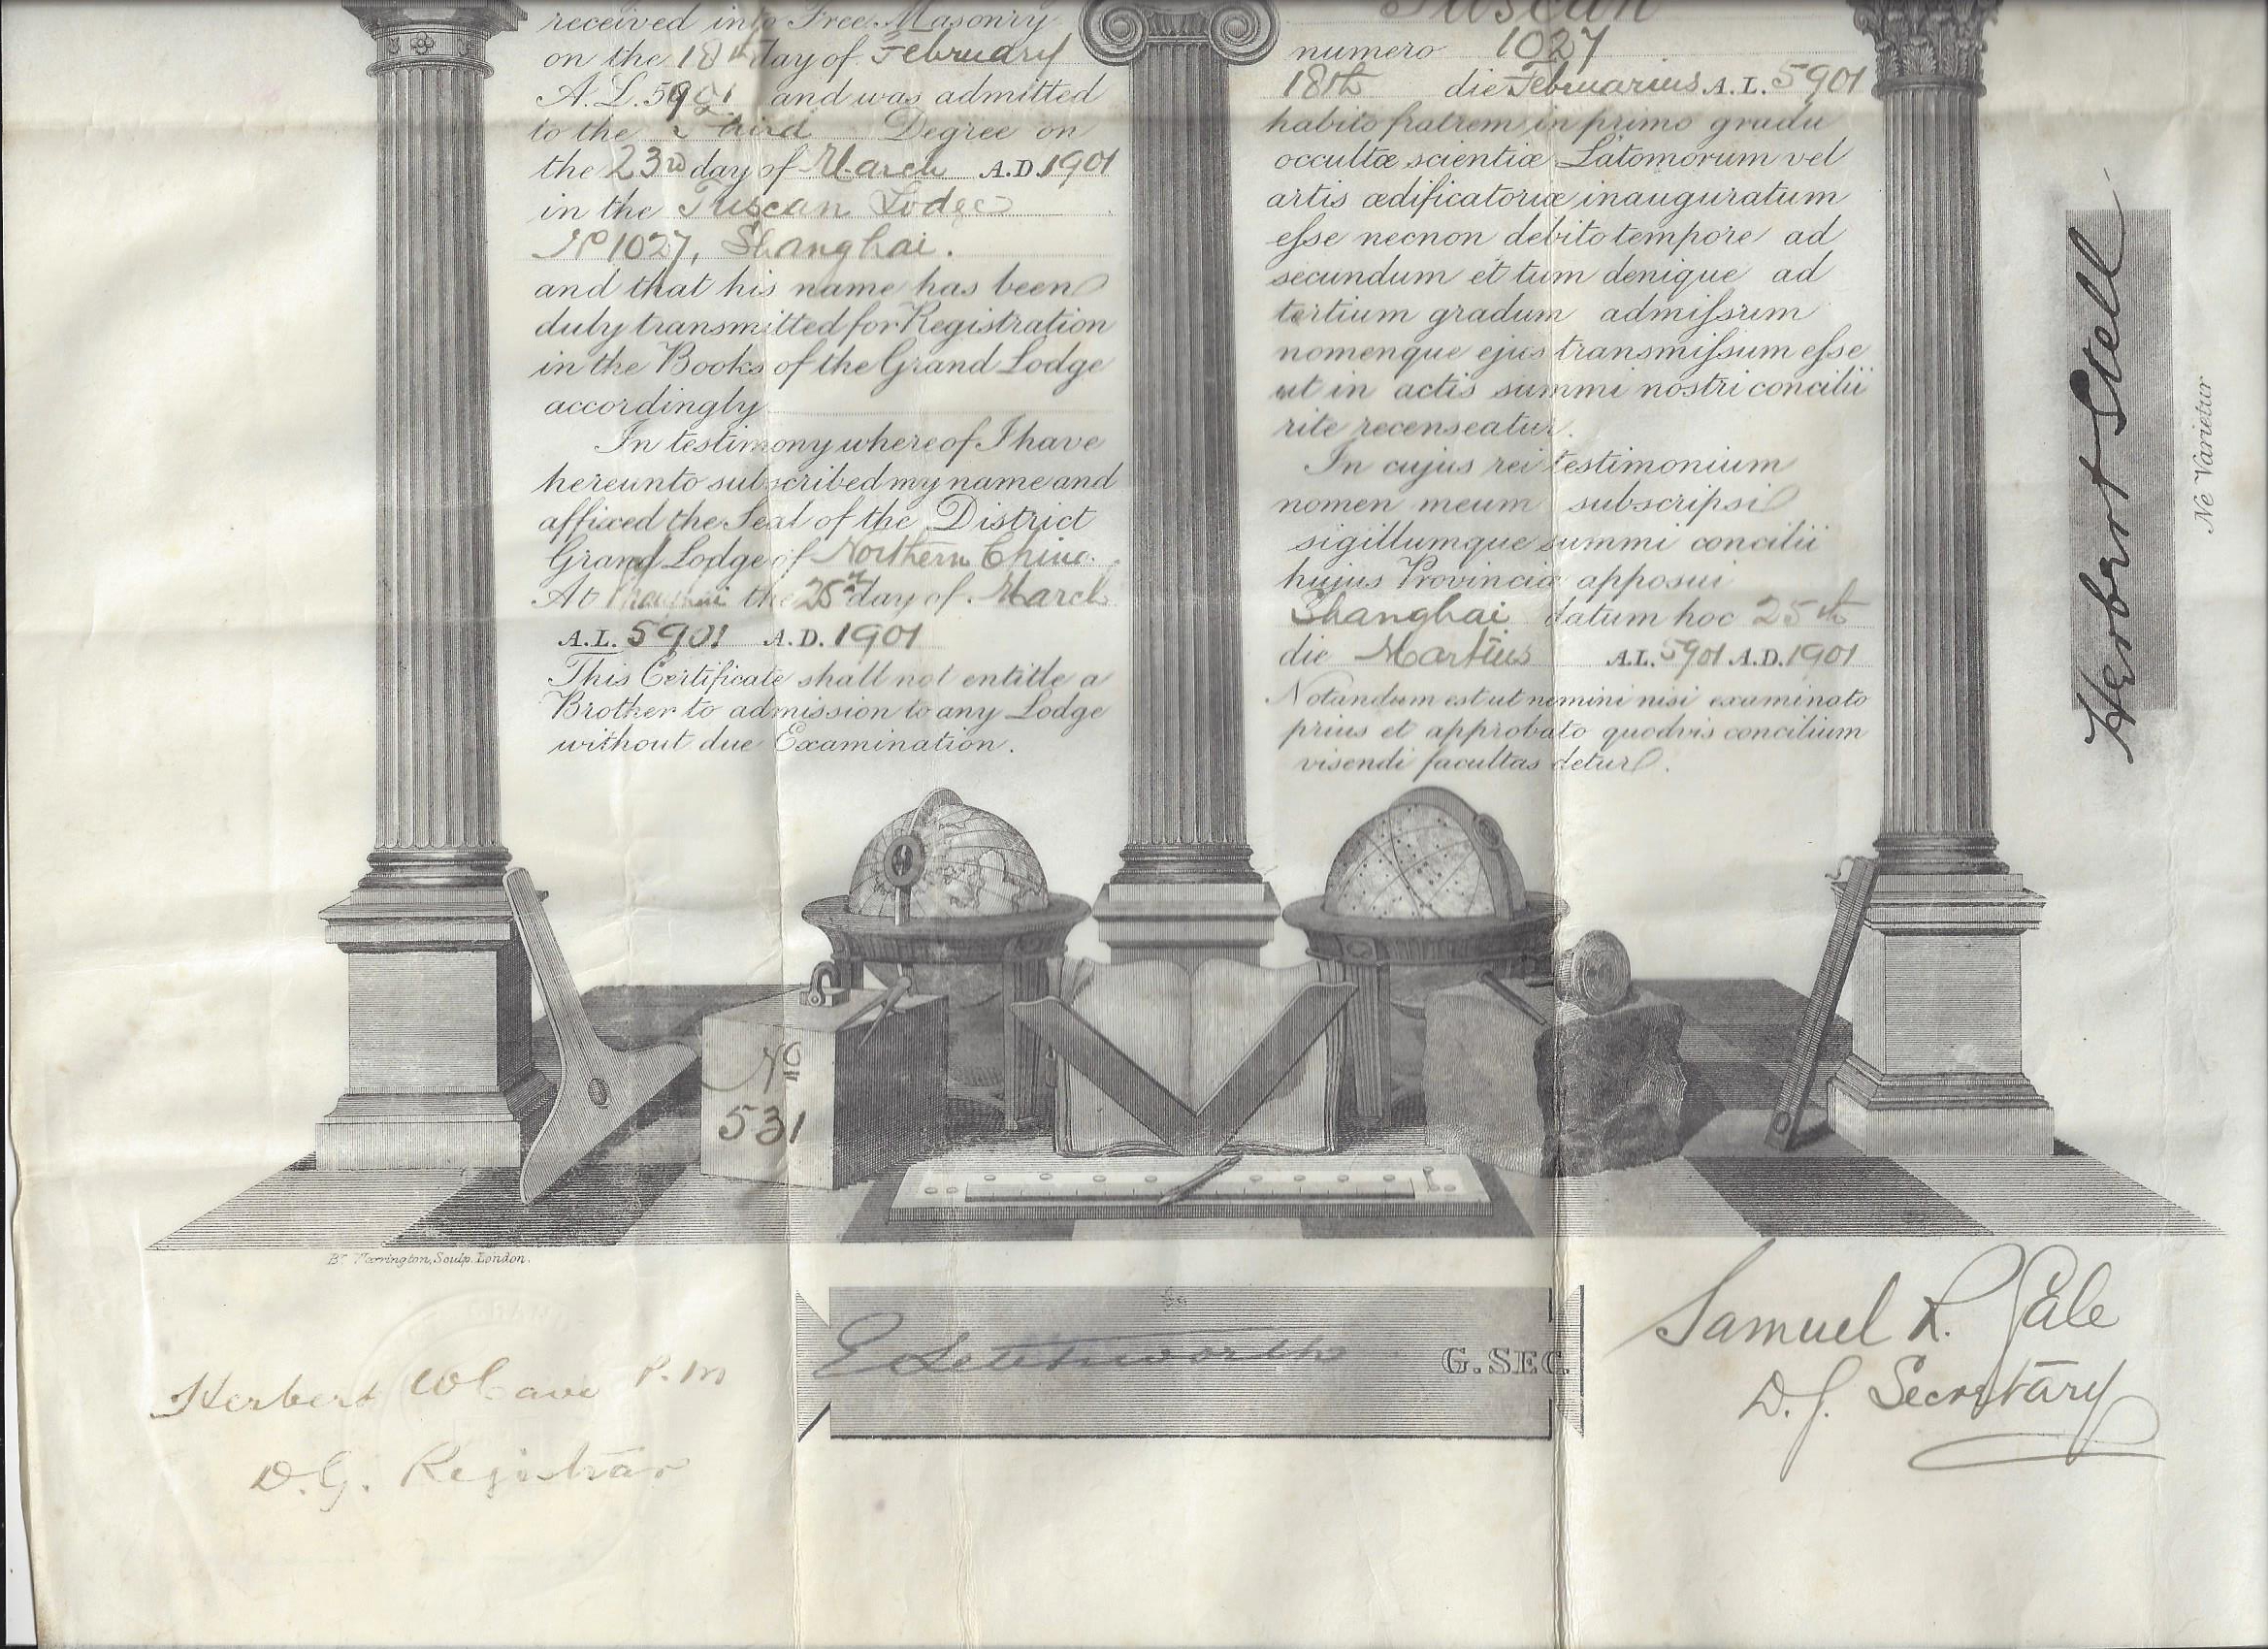 received into Free Masonry
on the 18th day of February
A.L. 5901 and was admitted
to the Third Degree on
the 23rd day of March A.D. 1901
in the Tuscan Lodge
No 1027, Shanghai.
and that his name has been
duly transmitted for Registration
in the Books of the Grand Lodge
accordingly
In testimony whereof I have
hereunto subscribed my name and
affixed the Seal of the District
Grand Lodge of Northern China
At Shanghai the 25th day of March
A.L. 5901 A.D. 1901
This Certificate shall not entitle a
Brother to admission to any Lodge
without due Examination.
Tuscan
numero 1027
18th die Februarius A.L. 5901
habito fratrem in primo gradu
occultæ scientiæ Latomorum vel
artis ædificatoriæ inauguratum
esse necnon debito tempore ad
secundum et tum denique ad
tertium gradum admissum
nomenque ejus transmissum esse
ut in actis summi nostri concilii
rite recenseatur.
In cujus rei testimonium
nomen meum subscripsi
sigillumque summi concilii
hujus Provinciæ apposui
Shanghai datum hoc 25th
die Martius A.L. 5901 A.D. 1901
Notandum est ut nemini nisi examinato
prius et approbato quodvis concilium
visendi facultas detur.
Herbert Stell
Ne Varietur
No
531
Br Harrington, Sculp. London.
Herbert W Cave P.M
D.G. Registrar
E Letchworth G. SEC.
Samuel R. Gale
D.G. Secretary